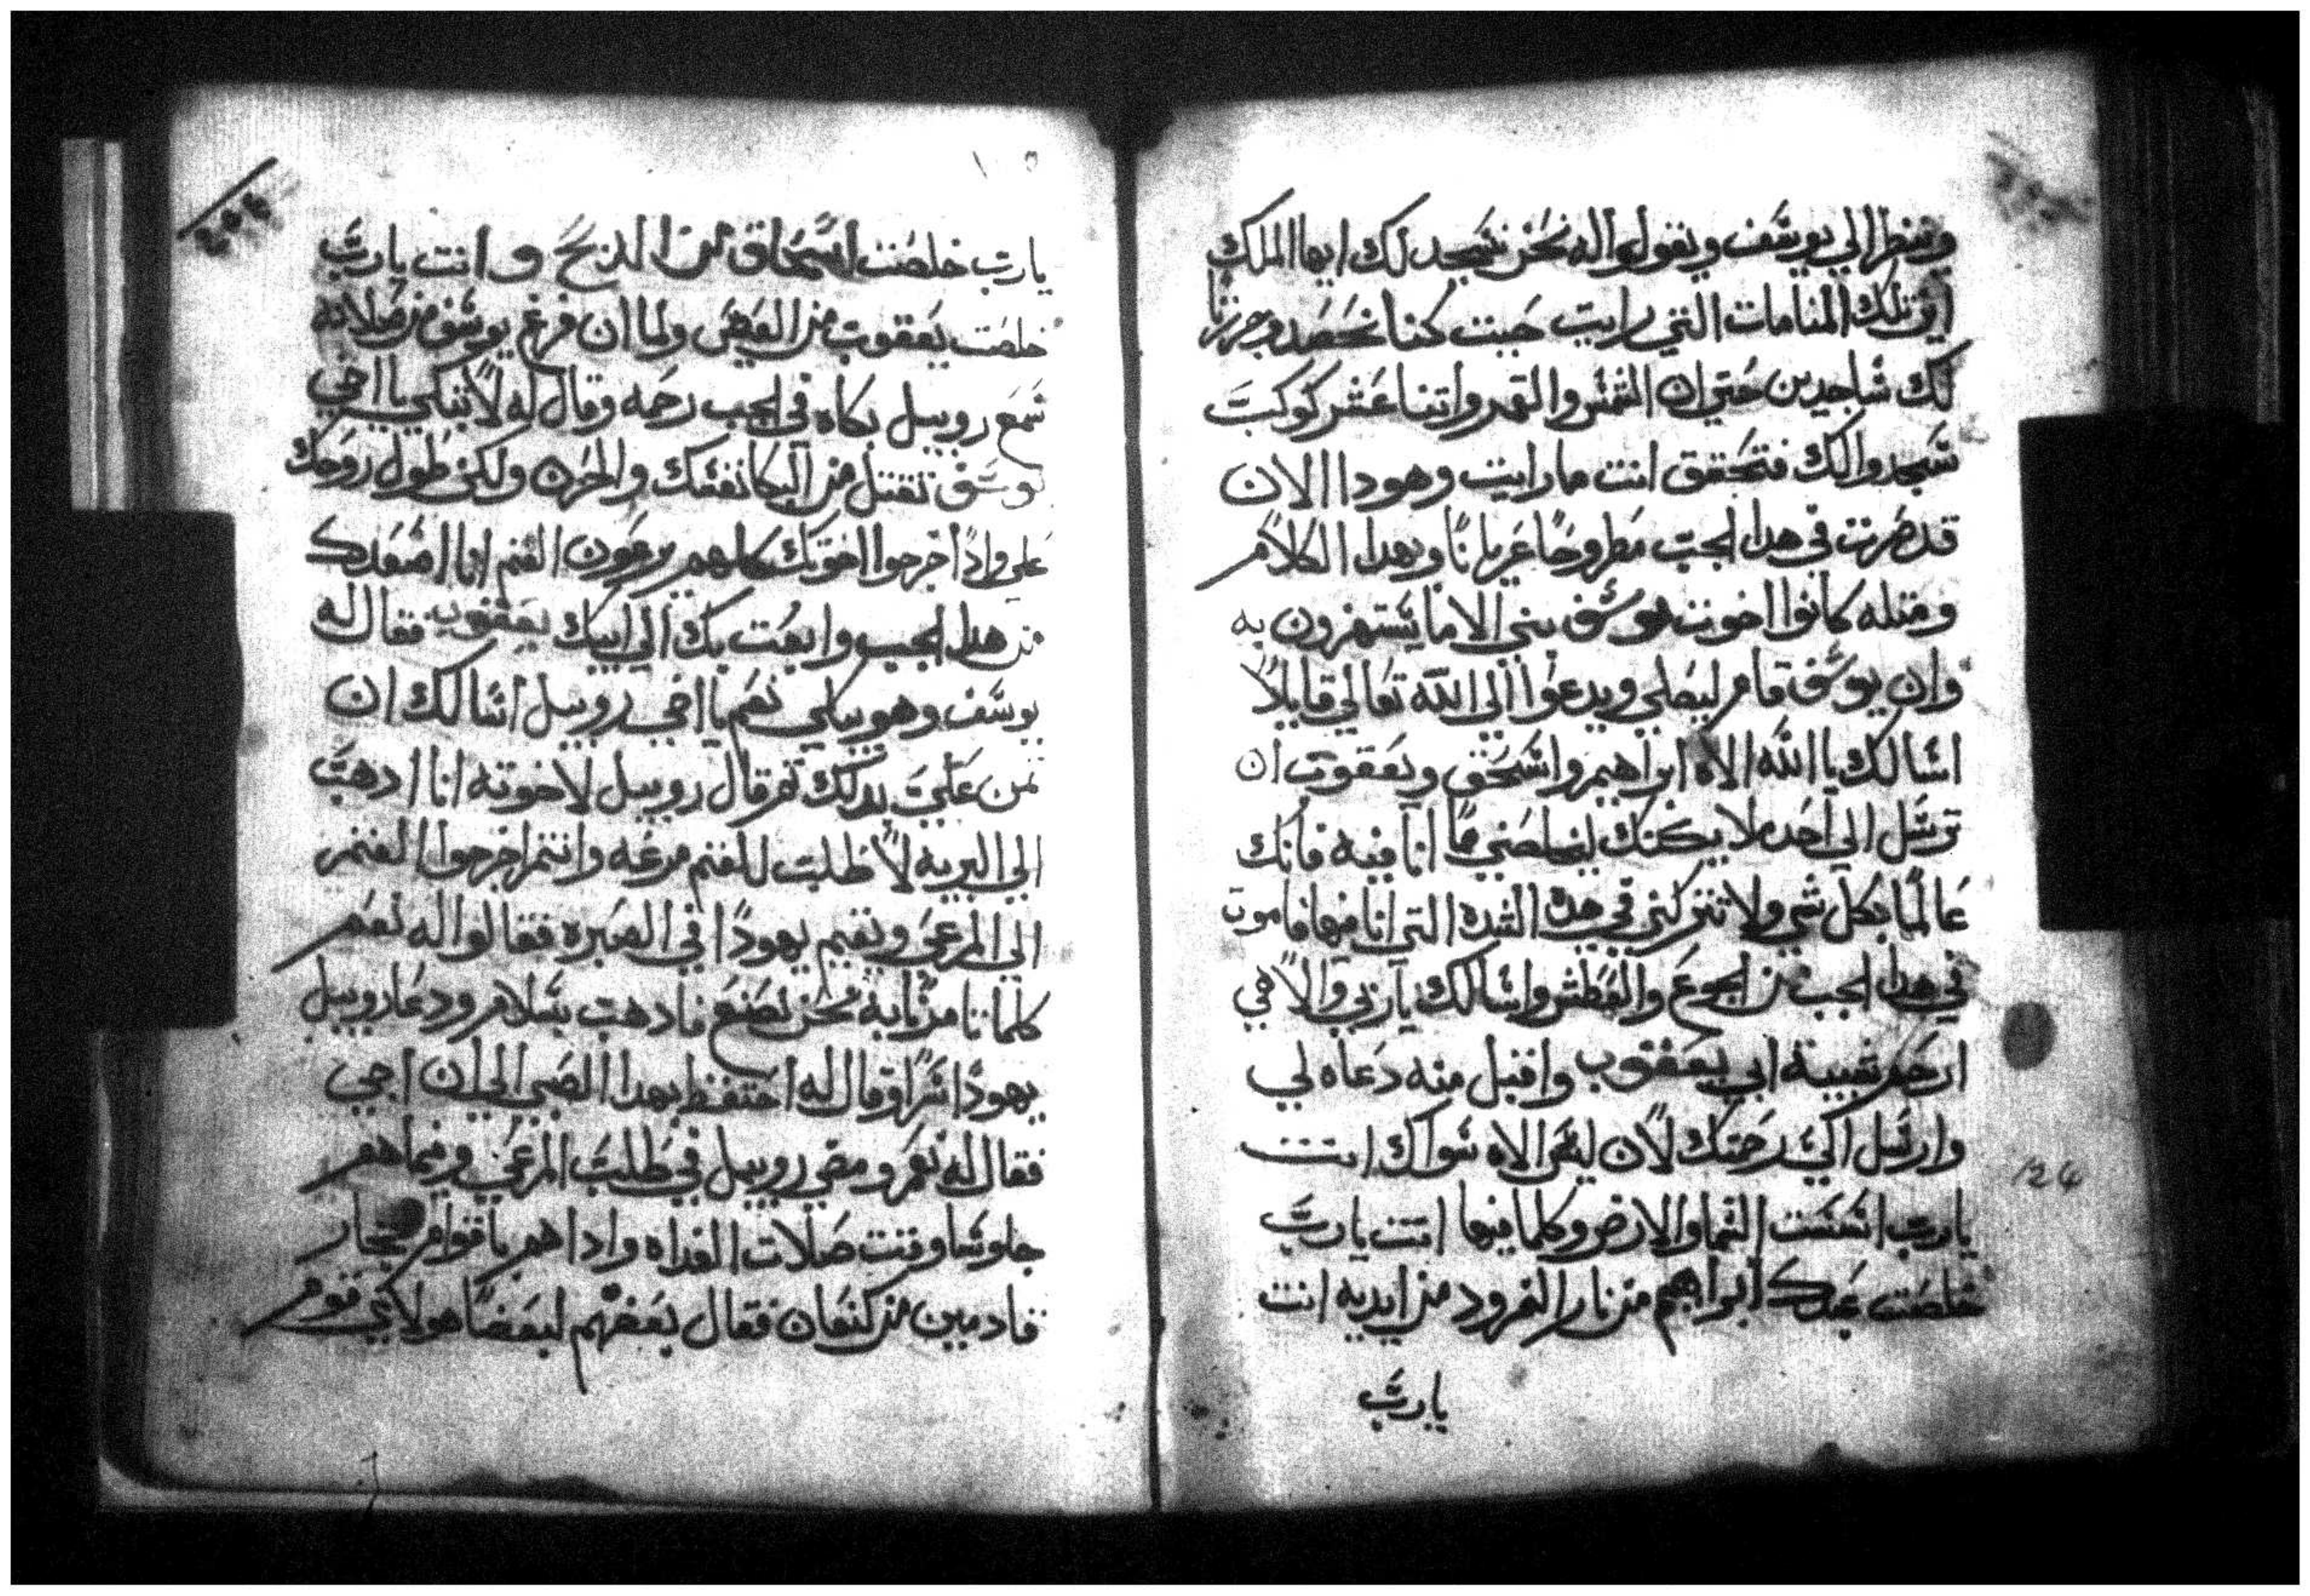 وتنظر الي يوسف ويقولوا له نحن نسجد لك ايها الملك
اين تلك المنامات التي رايت حيت كنا نحصد وجرزنا
لك ساجدين حتي ان الشمس والقمر واتنا عشر كوكبت
سجدوا لك فتحقق انت ما رايت وهودا الان
قد صرت في هدا الجب مطروحا عريانا وبهدا الكلام
ومتله كانوا اخوت يوسف بني الاما يستهزون به
وان يوسف قام ليصلي ويدعوا الي الله تعالي قايلا
اسالك يا الله الاه ابراهيم واسحق ويعقوب ان
ترسل الي احد ملايكتك ليخلصني مما انا فيه فانك
عالما بكل شي ولا تتركني في هده الشده التي انا فيها فاموت
في هدا الجب من الجوع والعطش واسالك ياربي والاهي
ارحم شيبية ابي يعقوب واقبل منه دعاه لي
وارسل الي رحمتك لان ليس الاه سواك انت
يارب اسست السما والارض وكلما فيها انت يارب
خلصت عبدك ابراهيم من نار النمرود من ايديه انت
يارب
124
يارب خلصت اسحاق من الدبح و انت يارب
خلصت يعقوب من العيص ولما ان فرغ يوسف من صلاته
سمع روبيل بكاه في الجب رحمه وقال له لا تبكي يا اخي
يوسف تقتل من البكا نفسك والحزن ولكن طول روحك
علي وادا خرجوا اخوتك كلهم يرعون الغنم انا اصعدك
من هدا الجب وابعت بك الي ابيك يعقوب فقال له
يوسف وهو يبكي نعم يا اخي روبيل اسالك ان
تمن علي بدلك تم قال روبيل لاخوته انا ادهب
الي البريه لاطلب للغنم مرعه وانتم اخرجوا الغنم
الي المرعي ونقيم يهودا في الصبره فقالوا له نعم
كلما تامرنا به نحن نصنع فادهب بسلام ودعا روبيل
يهودا سرا وقال له احتفظ بهدا الصبي الي ان اجي
فقال له نعم ومضي روبيل في طلب المرعي وفيما هم
جلوسا وقت صلات الغداه وادا هم باقوام تجار
قادمين من كنعان فقال بعضهم لبعضا هولاي قوم